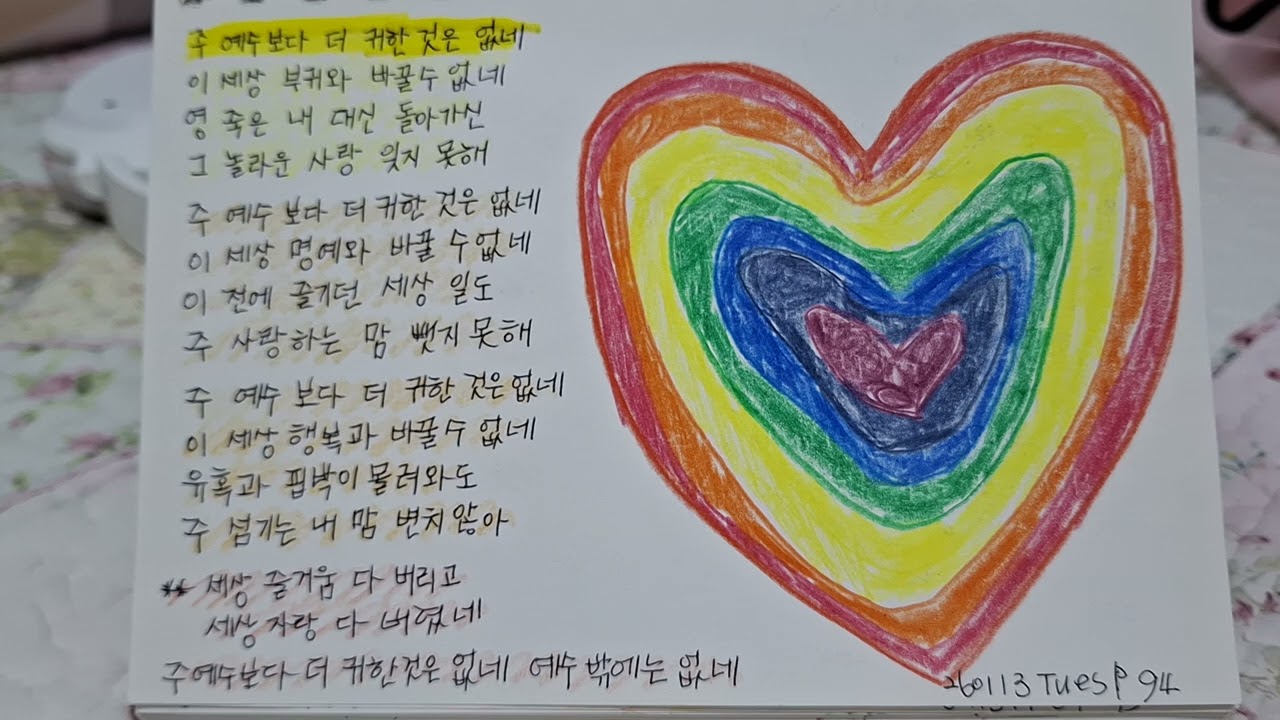 주 예수보다 더 귀한것은 없네
이 세상 부귀와 바꿀수 없네
영 죽은 내 대신 돌아가신
그 놀라운 사랑 잊지 못해
주 예수 보다 더 귀한 것은 없네
이 세상 명예와 바꿀 수 없네
이 전에 즐기던 세상 일도
주 사랑하는 맘 뺏지 못해
주 예수 보다 더 귀한 것은 없네
이 세상 행복과 바꿀수 없네
유혹과 핍박이 몰려와도
주 섬기는 내 맘 변치 않아
** 세상 즐거움 다 버리고
세상자랑 다 버렸네
주예수보다 더 귀한것은 없네 예수 밖에는 없네
260113 Tues P 94